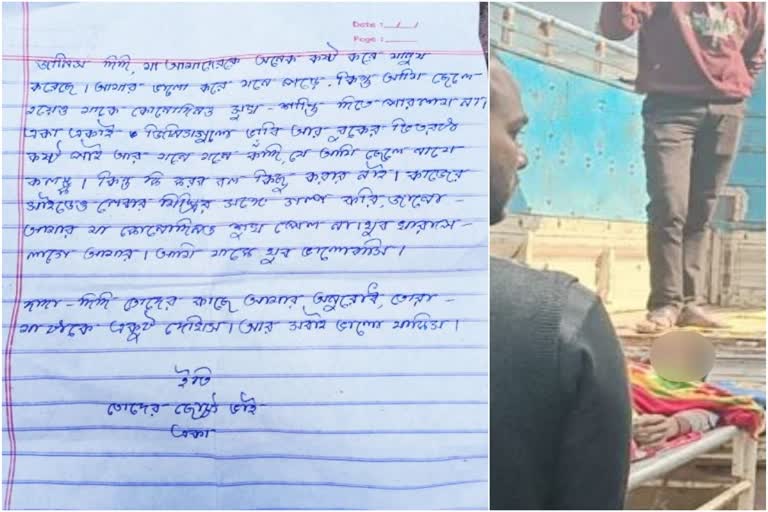 Date : __/__/__
Page : ____
জানিস দিদি, মা আমাদেরকে অনেক কষ্ট করে মানুষ
করেছে। আমার ভালো করে মনে পড়ে। কিন্তু আমি ছেলে
হয়েও মাকে কোনোদিনও সুখ-শান্তি দিতে পারলাম না।
একা একাই জিনিসগুলো ভাবি আর বুকের ভিতরটা
কষ্ট পাই আর মনে মনে কাঁদি, যে আমি ছেলে নামে
কলঙ্ক। কিন্তু কি করব বল কিছু করার নাই। কাজের
সাইডেও লেবার মিস্ত্রির সাথে গল্প করি, জানো-
আমার মা কোনোদিনও সুখ পেল না। খুব খারাপ-
লাগে আমার। আমি মাকে খুব ভালোবাসি।
দাদা-দিদি তোদের কাছে আমার অনুরোধ, তোরা-
মা টাকে একটু দেখিস। আর সবাই ভালো থাকিস।
ইতি
তোদের ছোট ভাই
একা